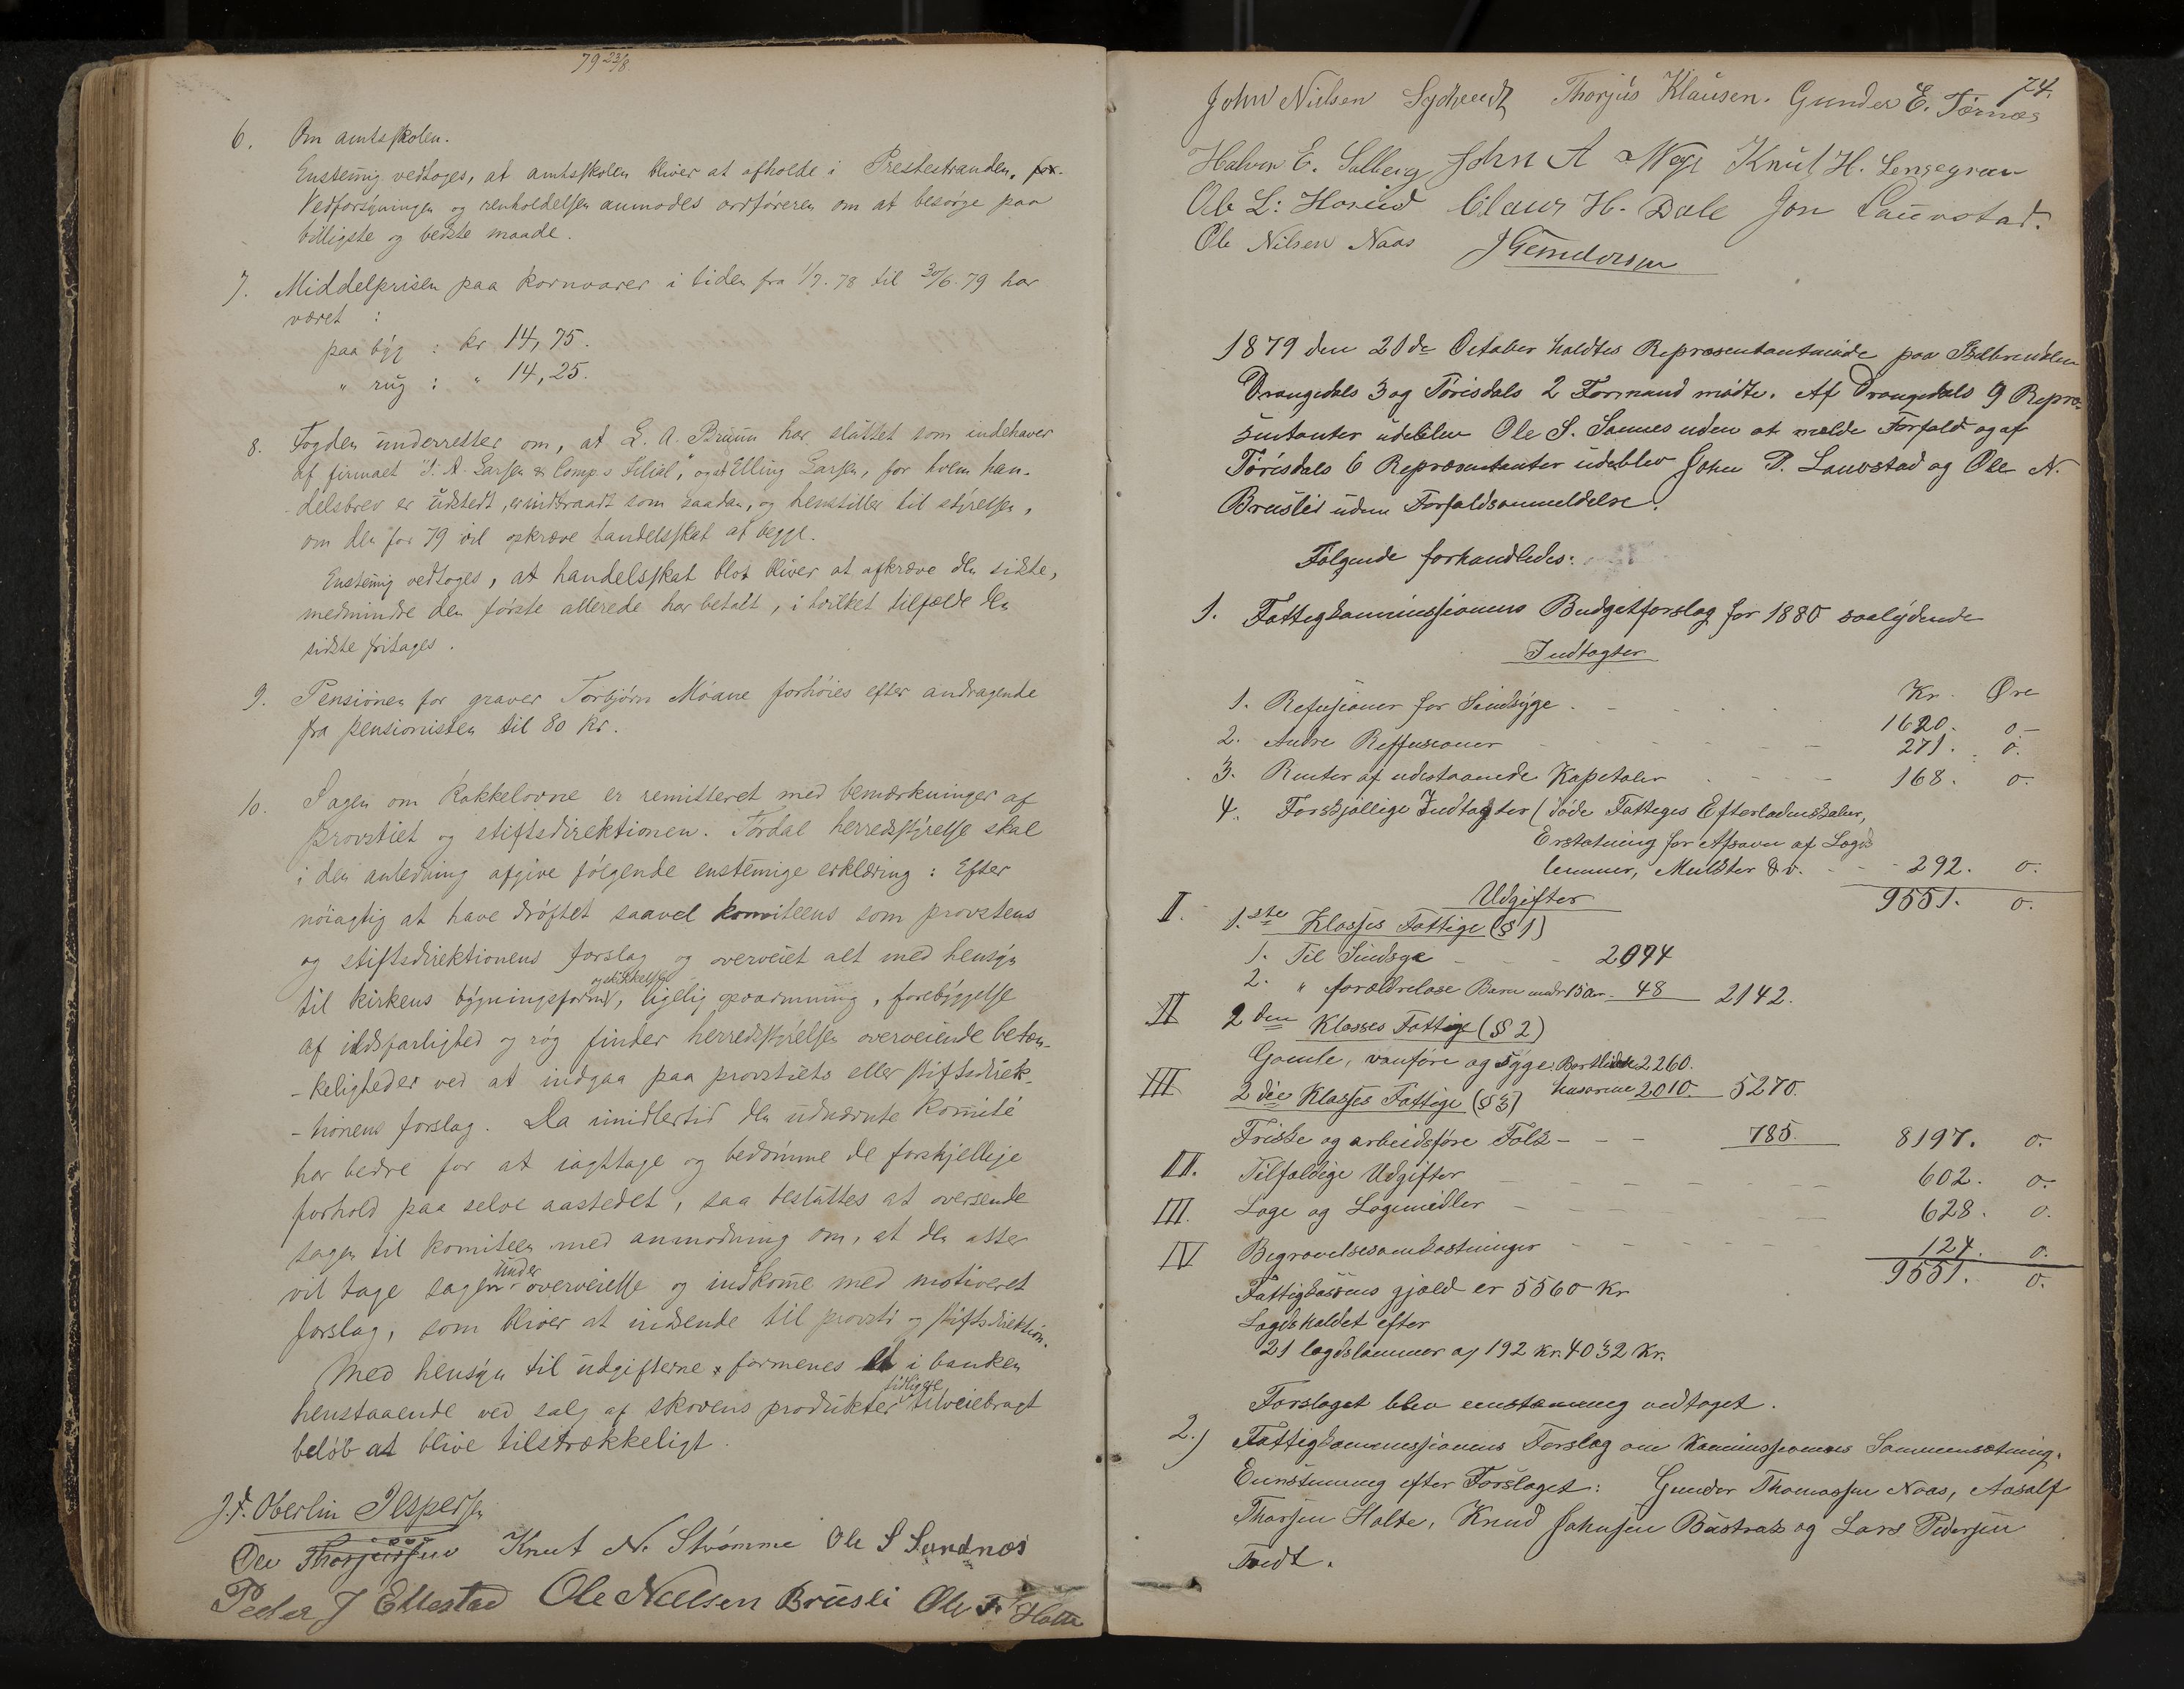 79 23/8
6. Om amtsskolen.
Enstemig vedtoges, at amtsskolen bliver at afholde i Prestestranden.
Vedforsyningen og renholdelsen anmodes ordføreren om at besørge paa
billigste og bedste maade.
7. Middelprisen paa kornvarer i tiden fra 1/7. 78 til 30/6. 79 har
været :
paa byg : kr 14,75.
" rug : " 14,25.
8. Fogden underretter om, at L. A. Bruun har sluttet som indehaver
af firmaet "S. A. Larsen & Comp.s Filial," og at Elling Larsen, for hvem han-
-delsbrev er udstedt, er indtraadt som saadan, og henstiller til styrelsen,
om den for 79 vil opkræve handelsskat af begge.
Enstemig vedtoges, at handelsskat blot bliver at afkræve den sidste,
medmindre den første allerede har betalt, i hvilket tilfælde den
sidste fritages.
9. Pensionen for graver Torbjørn Moane forhøies efter andragende
fra pensionisten til 80 kr.
10. Sagen om kakkelovne er remitteret med bemærkninger af
provstiet og stiftsdirektionen. Tørdal herredsstyrelse skal
i den anledning afgive følgende enstemige erklæring : Efter
nøiagtig at have drøftet saavel komiteens som provstens
og stiftsdirektionens forslag og overveiet alt med hensyn
til kirkens bygningsform og skikkelse, ligelig opvarmning, forebyggelse
af ildsfarlighed og røg finder herredsstyrelsen overveiende betæn-
-keligheder ved at indgaa paa provstiets eller stiftsdirek-
-tionens forslag. Da imidlertid den udnævnte komité
har bedre for at iagttage og bedømme de forskjellige
forhold paa selve aastedet, saa besluttes at oversende
sagen til komiteen med anmodning om, at den atter
vil tage sagen under overveielse og indkomme med motiveret
forslag, som bliver at indsende til provsti og stiftsdirektion.
Med hensyn til udgifterne formenes et i banken
henstaaende ved salg af skovens produkter tidligere tilveiebragt
beløb at blive tilstrækkeligt.
J. F. Oberlin Jespersen
Ole Thorjussen Knut N. Strømme Ole S Sandnæs
Peder J Ellestad Ole Nielsen Brusli Ole Holte
74.
John Nielsen Thorjus Klausen. Gunder E. Tørnæs
Halvor E. Solberg John A Knut H.
Ole L. Claus H. Dale Jon Lauvstad.
Ole Nilsen Naas J Gundersen
1879 den 21de October holdtes Repræsentantmøde paa
Drangedals 3 og Tørisdals 2 Formænd mødte. Af Drangedals 9 Repræ-
sentanter udeblev Ole S. Sannes uden at melde Forfald og af
Tørisdals 6 Repræsentanter udeblev John P. Lauvstad og Ole N.
Bruslid uden Forfaldsanmeldelse.
Følgende forhandledes:
1. Fattigkommissionens Budgetforslag for 1880 saalydende
Indtægter
Kr. Øre
1. Refusioner for Sindsyge 1620. 0
2. Andre Reffusioner 271. 0.
3. Renter af udestaaende Kapitaler 168. 0.
4. Forskjællige Indtægter (døde Fattiges Efterladenskaber,
Erstatning for Afsavn af Lægds
lemmer, Mulkter &v. 292. 0.
9551. 0.
Udgifter
II. 1.ste Klasses Fattige (§ 1)
1. Til Sindsyge 2094
2. " forældreløse Barn under 15 Aar 48 2142.
II 2den Klasses Fattige (§ 2)
Gamle, vanføre og syge. 2260.
III 2die Klasses Fattige (§ 3) 2010. 5270.
Friske og arbeidsføre Folk 785. 8197. 0.
II. Tilfældige Udgifter 602. 0.
III. Læge og Lægemidler 628. 0.
IV Begravelsesomkostninger 124. 0.
9551. 0.
Fattigkassens gjæld er 5560 Kr
Lægdsholdet efter
21 lægdslemmer a 192 kr. 4032 Kr.
Forslaget blev eenstemmig vedtaget.
2.) Fattigkommissionens Forslag om Kommissionens Sammensætning.
Eenstemmig efter Forslaget: Gunder Thomassen Naas, Aasolf
Thorsen Holte, Knud Johnsen Bustrak og Lars Pedersen
Tvedt.